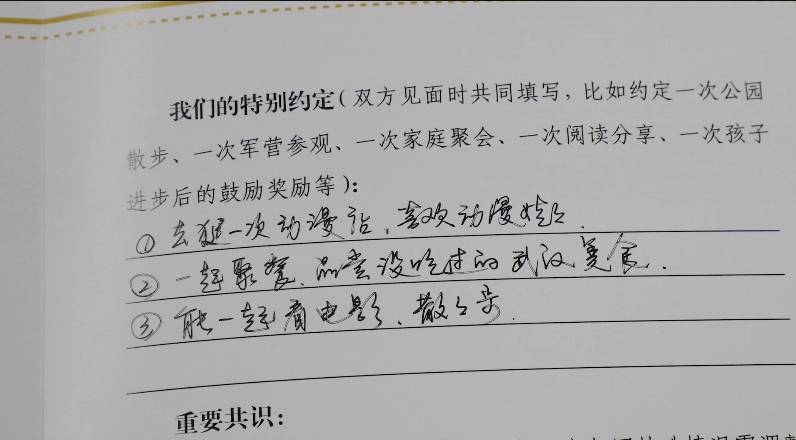 我们的特别约定（双方见面时共同填写，比如约定一次公园
散步、一次军营参观、一次家庭聚会、一次阅读分享、一次孩子
进步后的鼓励奖励等）：
① 去逛一次动漫店，喜欢动漫
② 一起聚餐，品尝没吃过的武汉美食。
③ 能一起看电影、散散步。
重要共识：